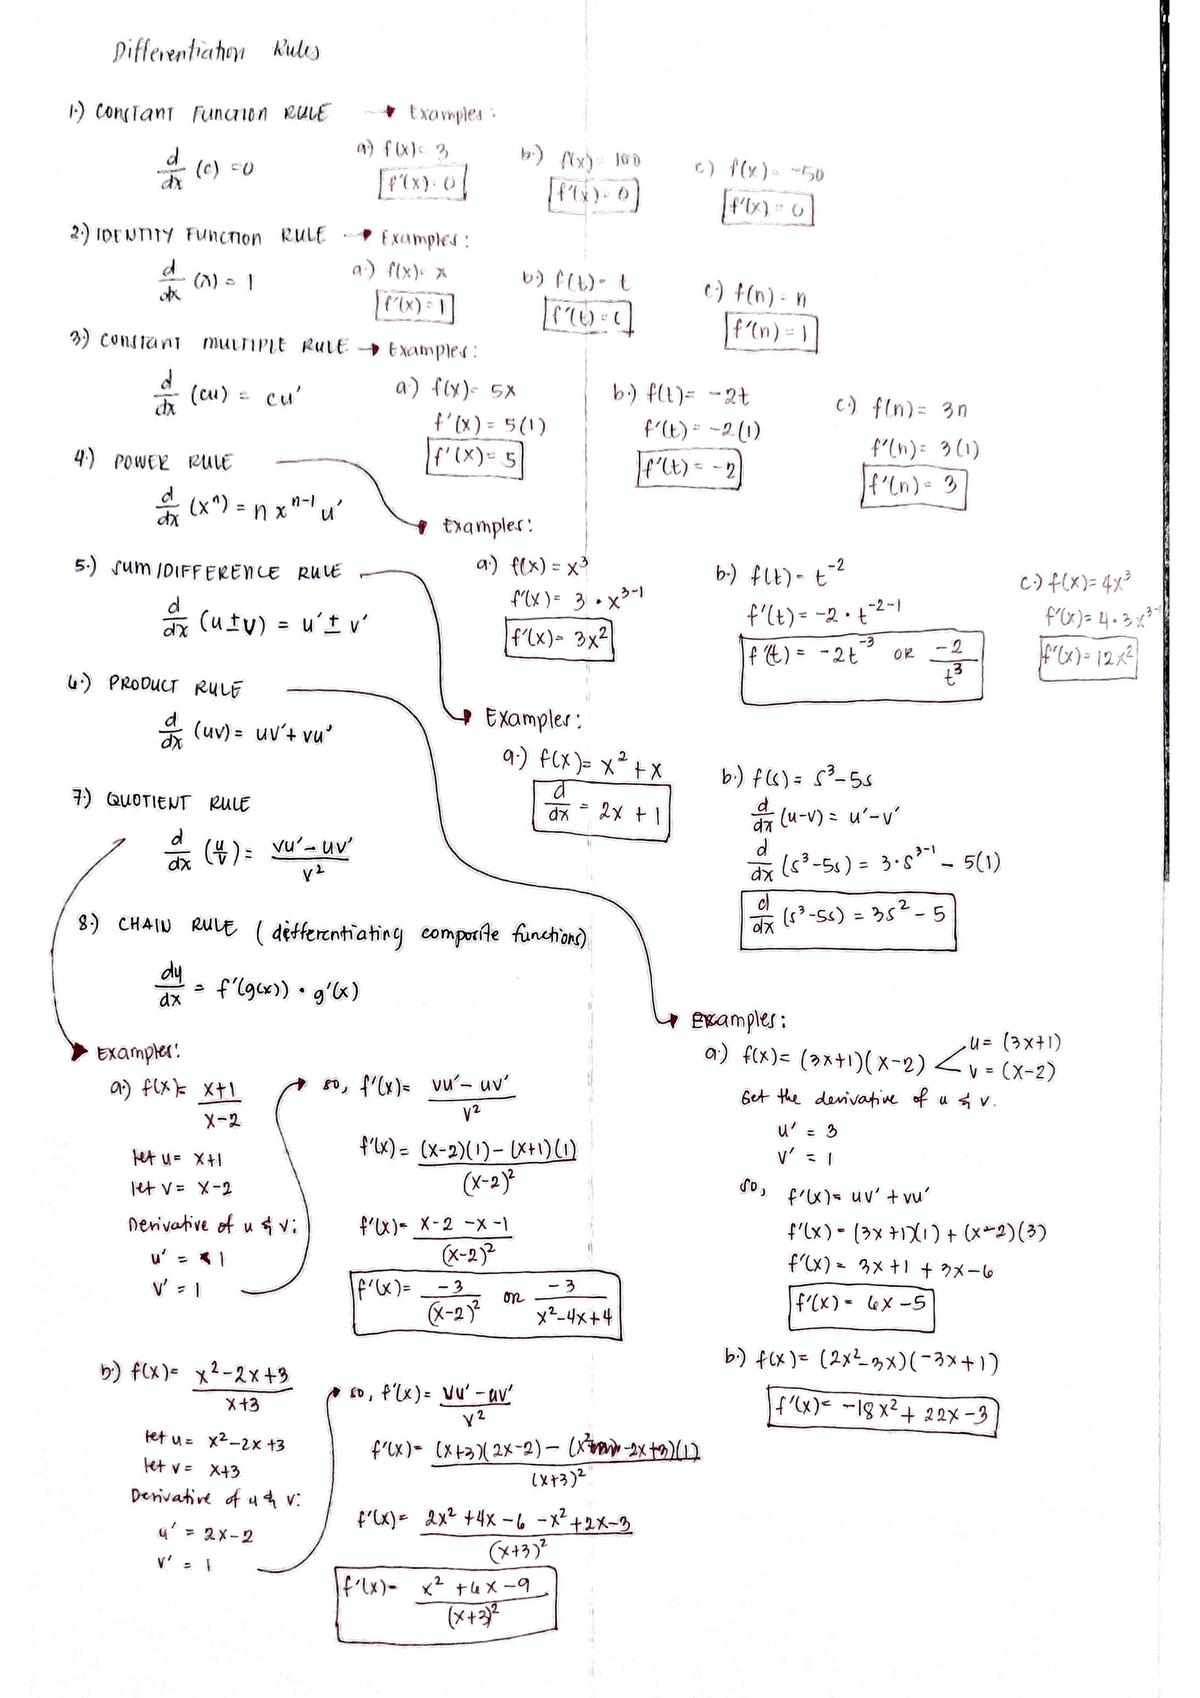 Differentiation Rules
1.) CONSTANT FUNCTION RULE → Examples:
d/dx (c) = 0
a) f(x) = 3
f'(x) = 0
b.) f(x) = 100
f'(x) = 0
c) f(x) = -50
f'(x) = 0
2.) IDENTITY FUNCTION RULE → Examples:
d/dx (x) = 1
a.) f(x) = x
f'(x) = 1
b.) f(t) = t
f'(t) = 1
c.) f(n) = n
f'(n) = 1
3.) CONSTANT MULTIPLE RULE → Examples:
d/dx (cu) = cu'
a.) f(x) = 5x
f'(x) = 5(1)
f'(x) = 5
b.) f(t) = -2t
f'(t) = -2(1)
f'(t) = -2
c.) f(n) = 3n
f'(n) = 3(1)
f'(n) = 3
4.) POWER RULE
d/dx (x^n) = n x^(n-1) u'
Examples:
a.) f(x) = x^3
f'(x) = 3 · x^(3-1)
f'(x) = 3x^2
b.) f(t) = t^-2
f'(t) = -2 · t^(-2-1)
f'(t) = -2t^-3 OR -2/t^3
c.) f(x) = 4x^3
f'(x) = 4·3x^(3-1)
f'(x) = 12x^2
5.) SUM/DIFFERENCE RULE
d/dx (u±v) = u' ± v'
Examples:
a.) f(x) = x^2 + x
d/dx = 2x + 1
b.) f(s) = s^3-5s
d/dx (u-v) = u'-v'
d/dx (s^3-5s) = 3·s^(3-1) - 5(1)
d/dx (s^3-5s) = 3s^2 - 5
6.) PRODUCT RULE
d/dx (uv) = uv' + vu'
7.) QUOTIENT RULE
d/dx (u/v) = (vu' - uv')/v^2
8.) CHAIN RULE (differentiating composite functions)
dy/dx = f'(g(x)) · g'(x)
Examples:
a.) f(x) = (x+1)/(x-2)
let u = x+1
let v = x-2
Derivative of u & v:
u' = 1
v' = 1
so, f'(x) = (vu' - uv')/v^2
f'(x) = ((x-2)(1) - (x+1)(1))/(x-2)^2
f'(x) = (x-2 -x -1)/(x-2)^2
f'(x) = -3/(x-2)^2 or -3/(x^2-4x+4)
b.) f(x) = (x^2-2x+3)/(x+3)
let u = x^2-2x+3
let v = x+3
Derivative of u & v:
u' = 2x-2
v' = 1
so, f'(x) = (vu' - uv')/v^2
f'(x) = ((x+3)(2x-2) - (x^2-2x+3)(1))/(x+3)^2
f'(x) = (2x^2 +4x -6 -x^2 +2x-3)/(x+3)^2
f'(x) = (x^2 +6x -9)/(x+3)^2
Examples:
a.) f(x) = (3x+1)(x-2) < u = (3x+1)
v = (x-2)
Get the derivative of u & v.
u' = 3
v' = 1
so, f'(x) = uv' + vu'
f'(x) = (3x+1)(1) + (x-2)(3)
f'(x) = 3x+1 + 3x-6
f'(x) = 6x-5
b.) f(x) = (2x^2-3x)(-3x+1)
f'(x) = -18x^2 + 22x-3